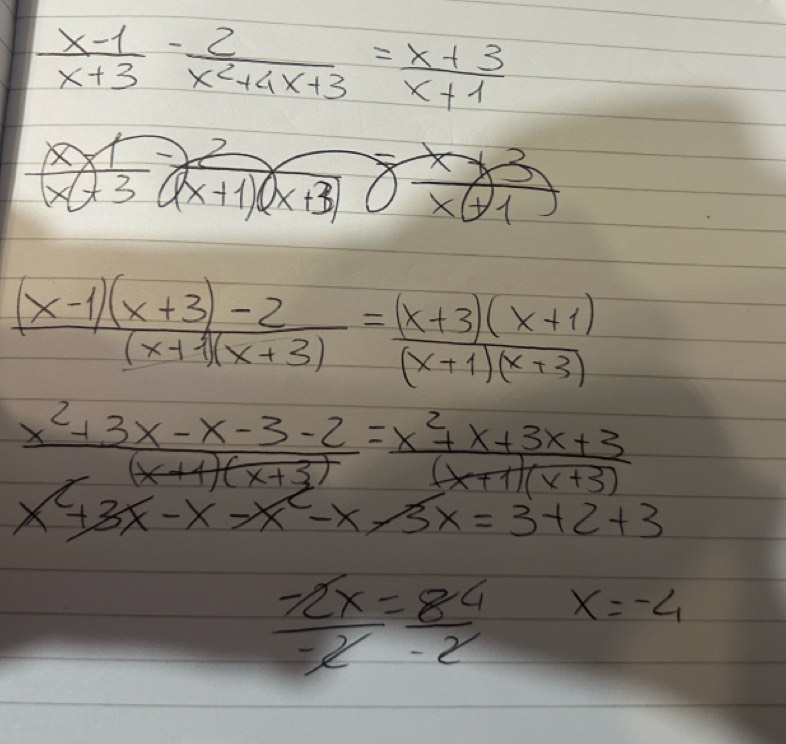 (x-1)/(x+3) - 2/(x²+4x+3) = (x+3)/(x+1)
(x-1)/(x+3) - 2/((x+1)(x+3)) = (x+3)/(x+1)
((x-1)(x+3)-2)/((x+1)(x+3)) = ((x+3)(x+1))/((x+1)(x+3))
(x²+3x-x-3-2)/((x+1)(x+3)) = (x²+x+3x+3)/((x+1)(x+3))
x²+3x-x-x²-x-3x=3+2+3
-2x/-2 = 8 4/-2 x=-4